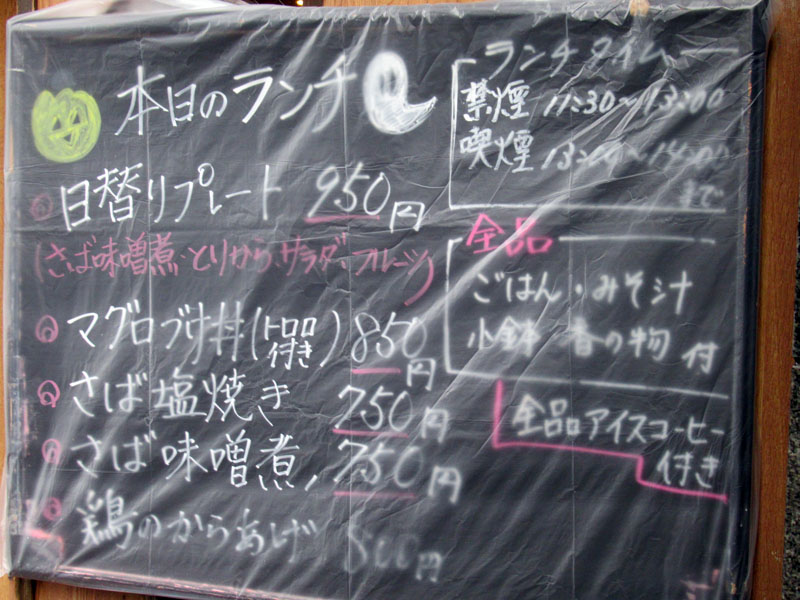 本日のランチ
日替りプレート 950円
(さば味噌煮・とりから、サラダ、フルーツ)
マグロづけ丼(トロロ付き) 850円
さば塩焼き 750円
さば味噌煮 750円
鶏のからあげ 500円
ランチタイム
禁煙 11:30～13:00
喫煙 13:00～14:00
まで
全品
ごはん・みそ汁
小鉢 香の物 付
全品アイスコーヒー
付き